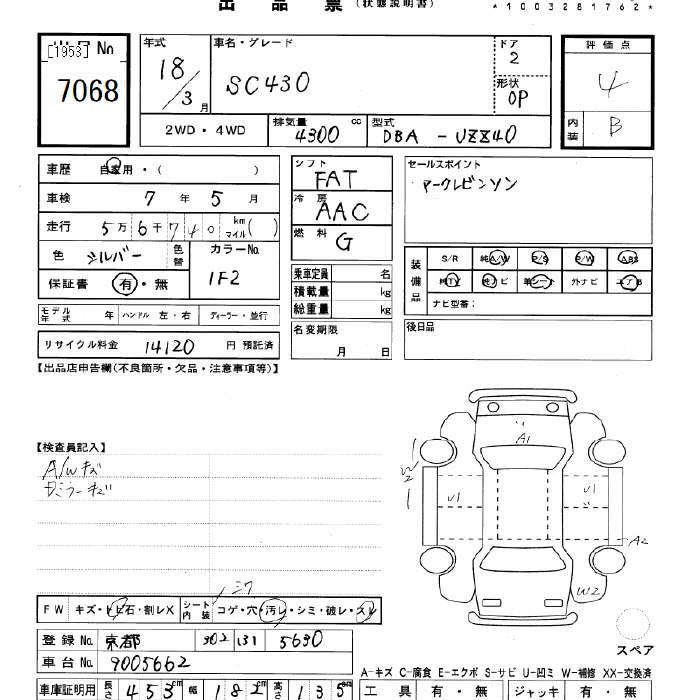 出品票 (状態説明書)
*1003281762*
[1953] No
7068
年式 車名・グレード ドア
18/3月 SC430 2
形状
OP
2WD・4WD 排気量 4300 cc 型式 DBA-UZZ40
評価点
4
内装 B
車歴 自家用・( )
車検 7年5月
走行 5万6千740 km マイル( )
色 シルバー 色替 カラーNo. 1F2
保証書 有・無
モデル年式 年 ハンドル 左・右 ディーラー・並行
リサイクル料金 14120 円 預託済
シフト FAT
冷房 AAC
燃料 G
乗車定員 名
積載量 kg
総重量 kg
名変期限
月 日
セールスポイント
マークレビンソン
装備品 S/R 純A/W P/S P/W ABS
純TV 純ナビ 革シート 外ナビ エアB
ナビ型番:
後日品
【出品店申告欄(不良箇所・欠品・注意事項等)】
【検査員記入】
A/Wキズ
ミラーキズ
A1
W2
U1 U1
A2
W2
スペア
シワ
FW キズ・トビ石・割レX シート内装 コゲ・穴・汚レ・シミ・破レ・スレ
登録No. 京都 302 131 5630
車台No. 9005662
A-キズ C-腐食 E-エクボ S-サビ U-凹ミ W-補修 XX-交換済
車庫証明用 長さ 453cm 幅 182cm 高さ 135cm
工具 有・無 ジャッキ 有・無